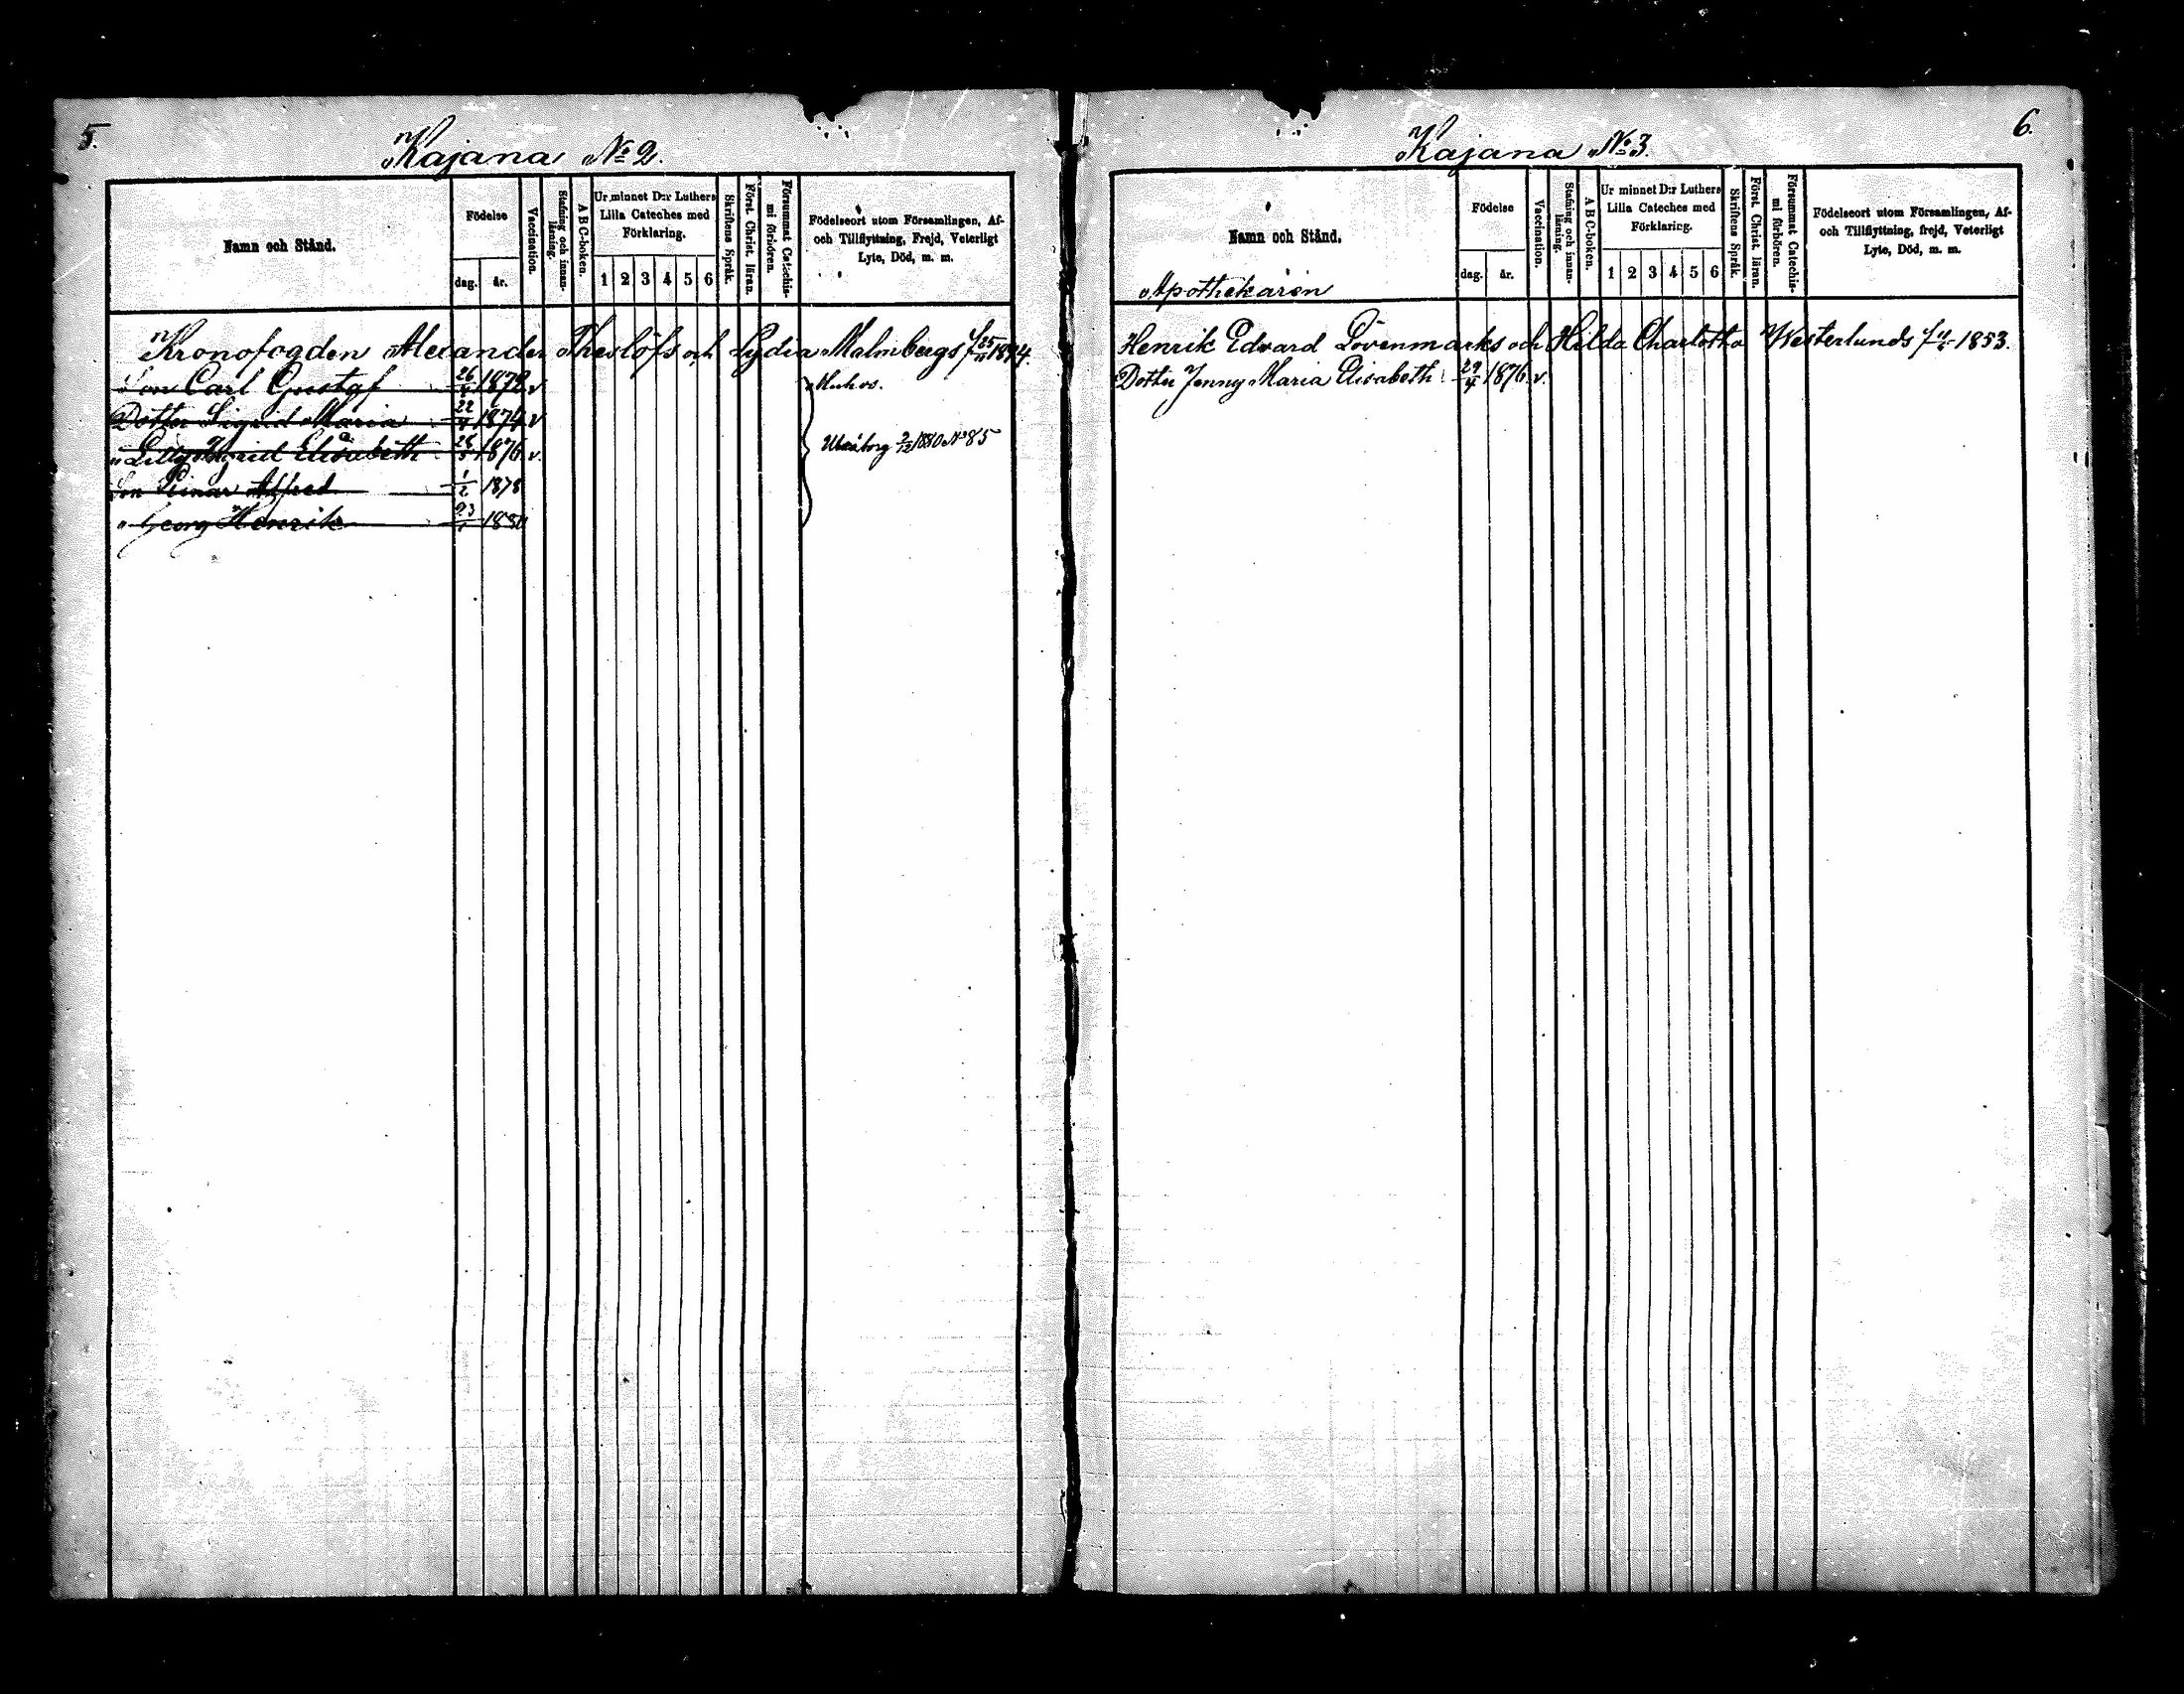 5.
Kajana No 2.
Namn och Stånd.
Födelse
dag.
år.
Vaccination.
Stafning och innanläsning.
A B C-boken.
Ur minnet D:r Luthers
Lilla Cateches med
Förklaring.
1 2 3 4 5 6
Skriftens Språk.
Först. Christ. läran.
Försummat Catechismi förhören.
Födelseort utom Församlingen, Af-
och Tillflyttning, Frejd, Veterligt
Lyte, Död, m. m.
Kronofogden Alexander Theslöfs och Lydia Malmbergs f 25
Son Carl Gustaf 26 1872 v Muhos.
Dotter Sigrid Maria 22/4 1874 v
" Lilly Elisabeth 1876 v. Uleåborg 1880 No 85
Son Einar Alfred 1/2 1878
" Georg Henrik 23/1 1880
6.
Kajana No 3.
Namn och Stånd.
Födelse
dag.
år.
Vaccination.
Stafning och innanläsning.
A B C-boken.
Ur minnet D:r Luthers
Lilla Cateches med
Förklaring.
1 2 3 4 5 6
Skriftens Språk.
Först. Christ. läran.
Försummat Catechismi förhören.
Födelseort utom Församlingen, Af-
och Tillflyttning, frejd, Veterligt
Lyte, Död, m. m.
Apothekaren
Henrik Edvard Lövenmarks och Hilda Charlotta Westerlunds f 1853.
Dotter Jenny Maria Elisabeth 29/4 1876 v.